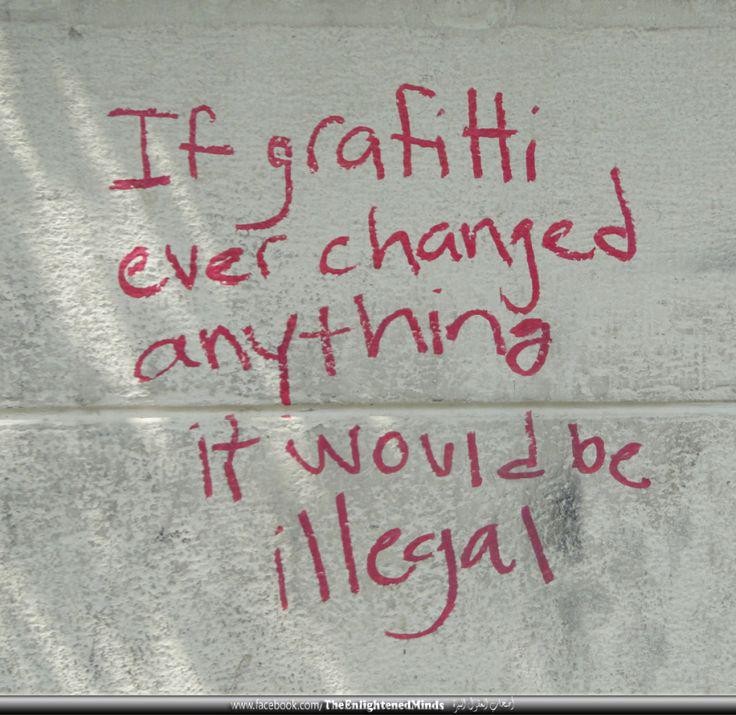 If grafitti
ever changed
anything
it would be
illegal
www.facebook.com/TheEnlightenedMinds أصحاب العقول النيرة